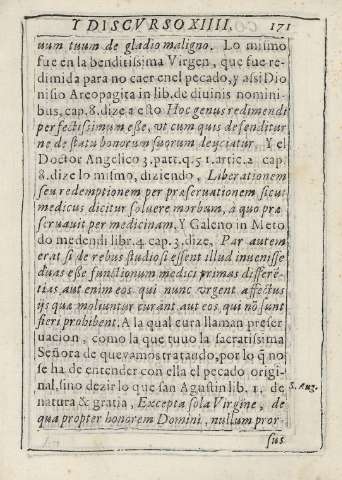 Y DISCVRSO XIIII. 171
uum tuum de gladio maligno. Lo mismo
fue en la benditissima Virgen, que fue re-
dimida para no caer en el pecado, y assi Dio
nisio Areopagita in lib. de diuinis nomini-
bus, cap. 8. dize a esto Hoc genus redimendi
perfectissimum esse, vt cum quis defenditur
ne de statu bonorum suorum deijciatur. Y el
Doctor Angelico 3. part. q. 51. artic. 2 cap
8. dize lo mismo, diziendo, Liberationem
seu redemptionem per præseruationem sicut
medicus dicitur soluere morbum, a quo præ
scruauit per medicinam, Y Galeno in Meto
do medendi libr. 4. cap. 3. dize, Par autem
erat si de rebus studiosi essent illud inuenisse
duas esse functionum medici primas differē-
tias aut enim eos qui nunc vrgent affectus
ijs quæ moliuntur curant aut eos, qui nō sunt
fieri prohibent. A la qual cura llaman preser
uacion, como la que tuuo la sacratissima
Señora de que vamos tratando, por lo q̃ no
se ha de entender con ella el pecado origi-
nal, sino dezir lo que san Agustin lib. 1. de
natura & gratia, Excepta sola Virgine, de
S. Aug.
qua propter honorem Domini, nullum pror-
sus